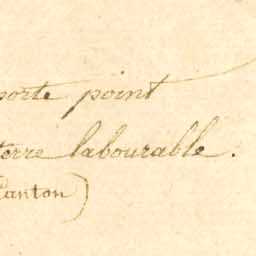 porte point
terre labourable.
Canton)